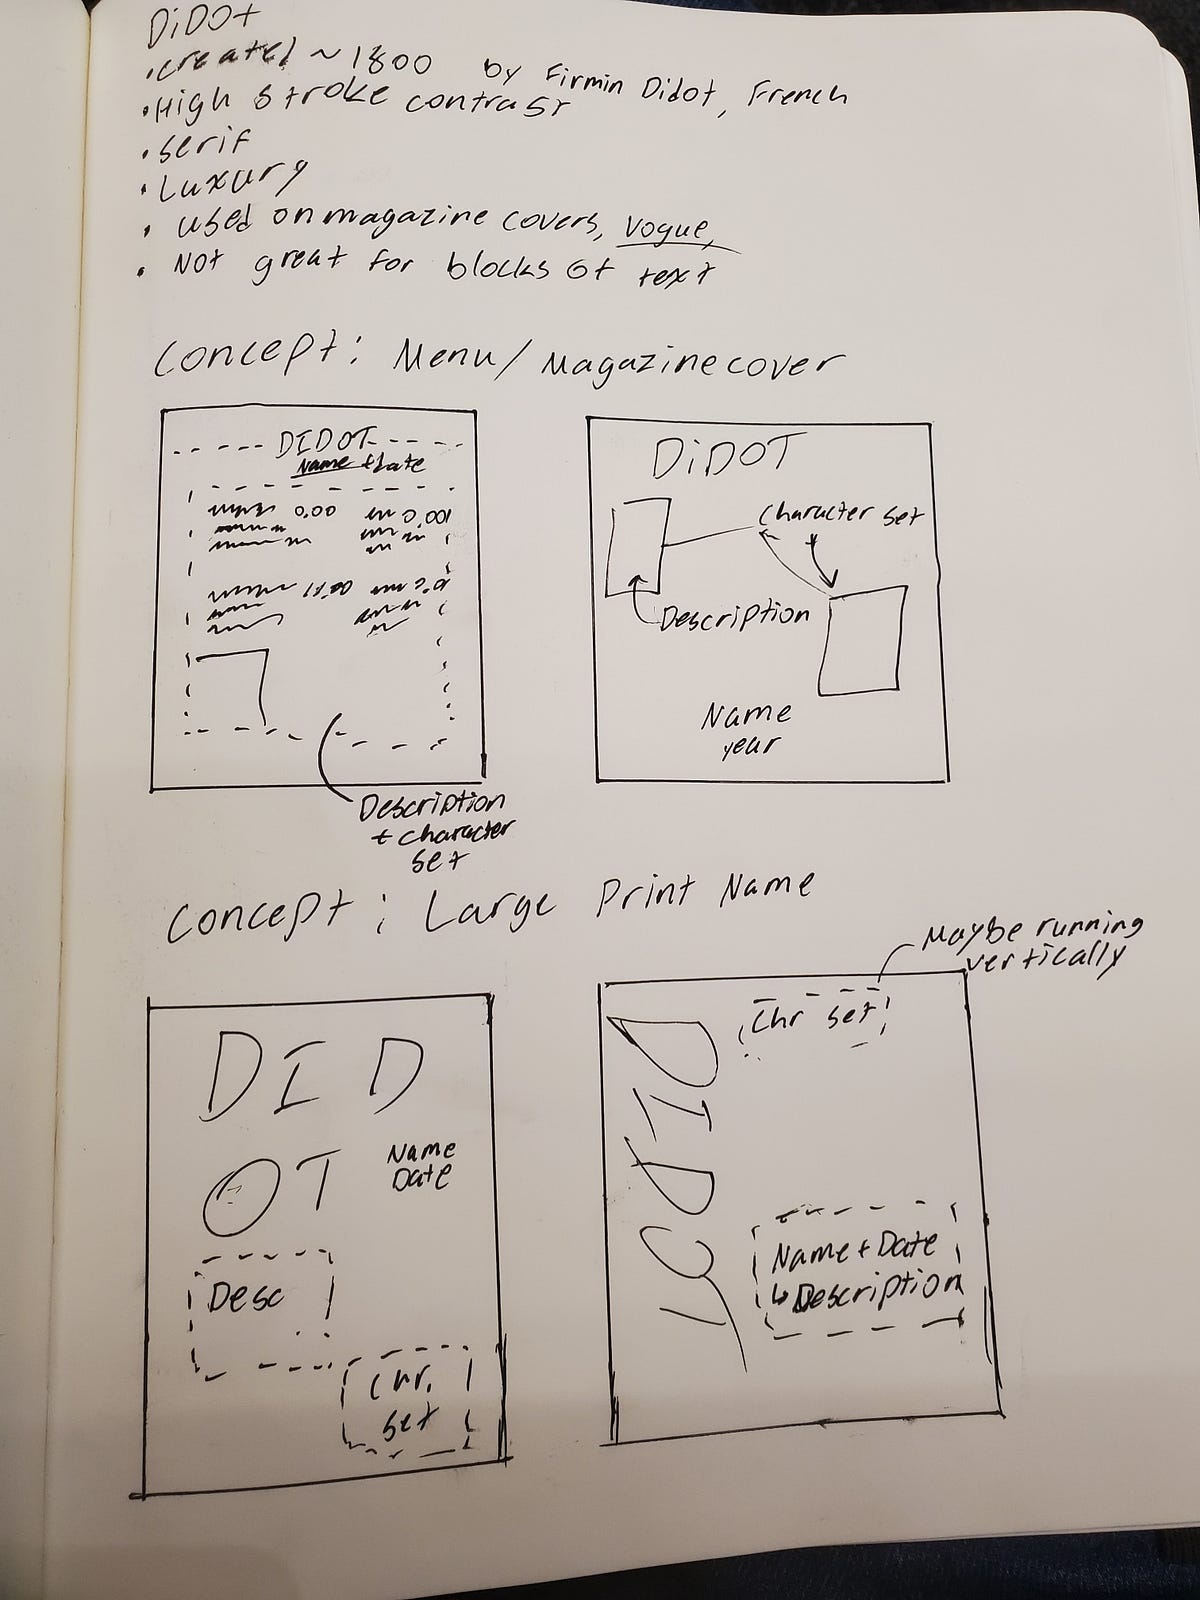 DiDOt
• created ~ 1800 by Firmin Didot, French
• High stroke contrast
• serif
• Luxury
• used on magazine covers, Vogue,
• Not great for blocks of text
Concept: Menu/Magazine cover
DIDOT
Name + Date
0.00
DiDOT
Character set
Description
Name
year
Description
+ character
set
Concept: Large Print Name
Maybe running
vertically
DID
OT
Name
Date
Desc
Chr.
set
DIDOT
Chr set
Name + Date
↳ Description